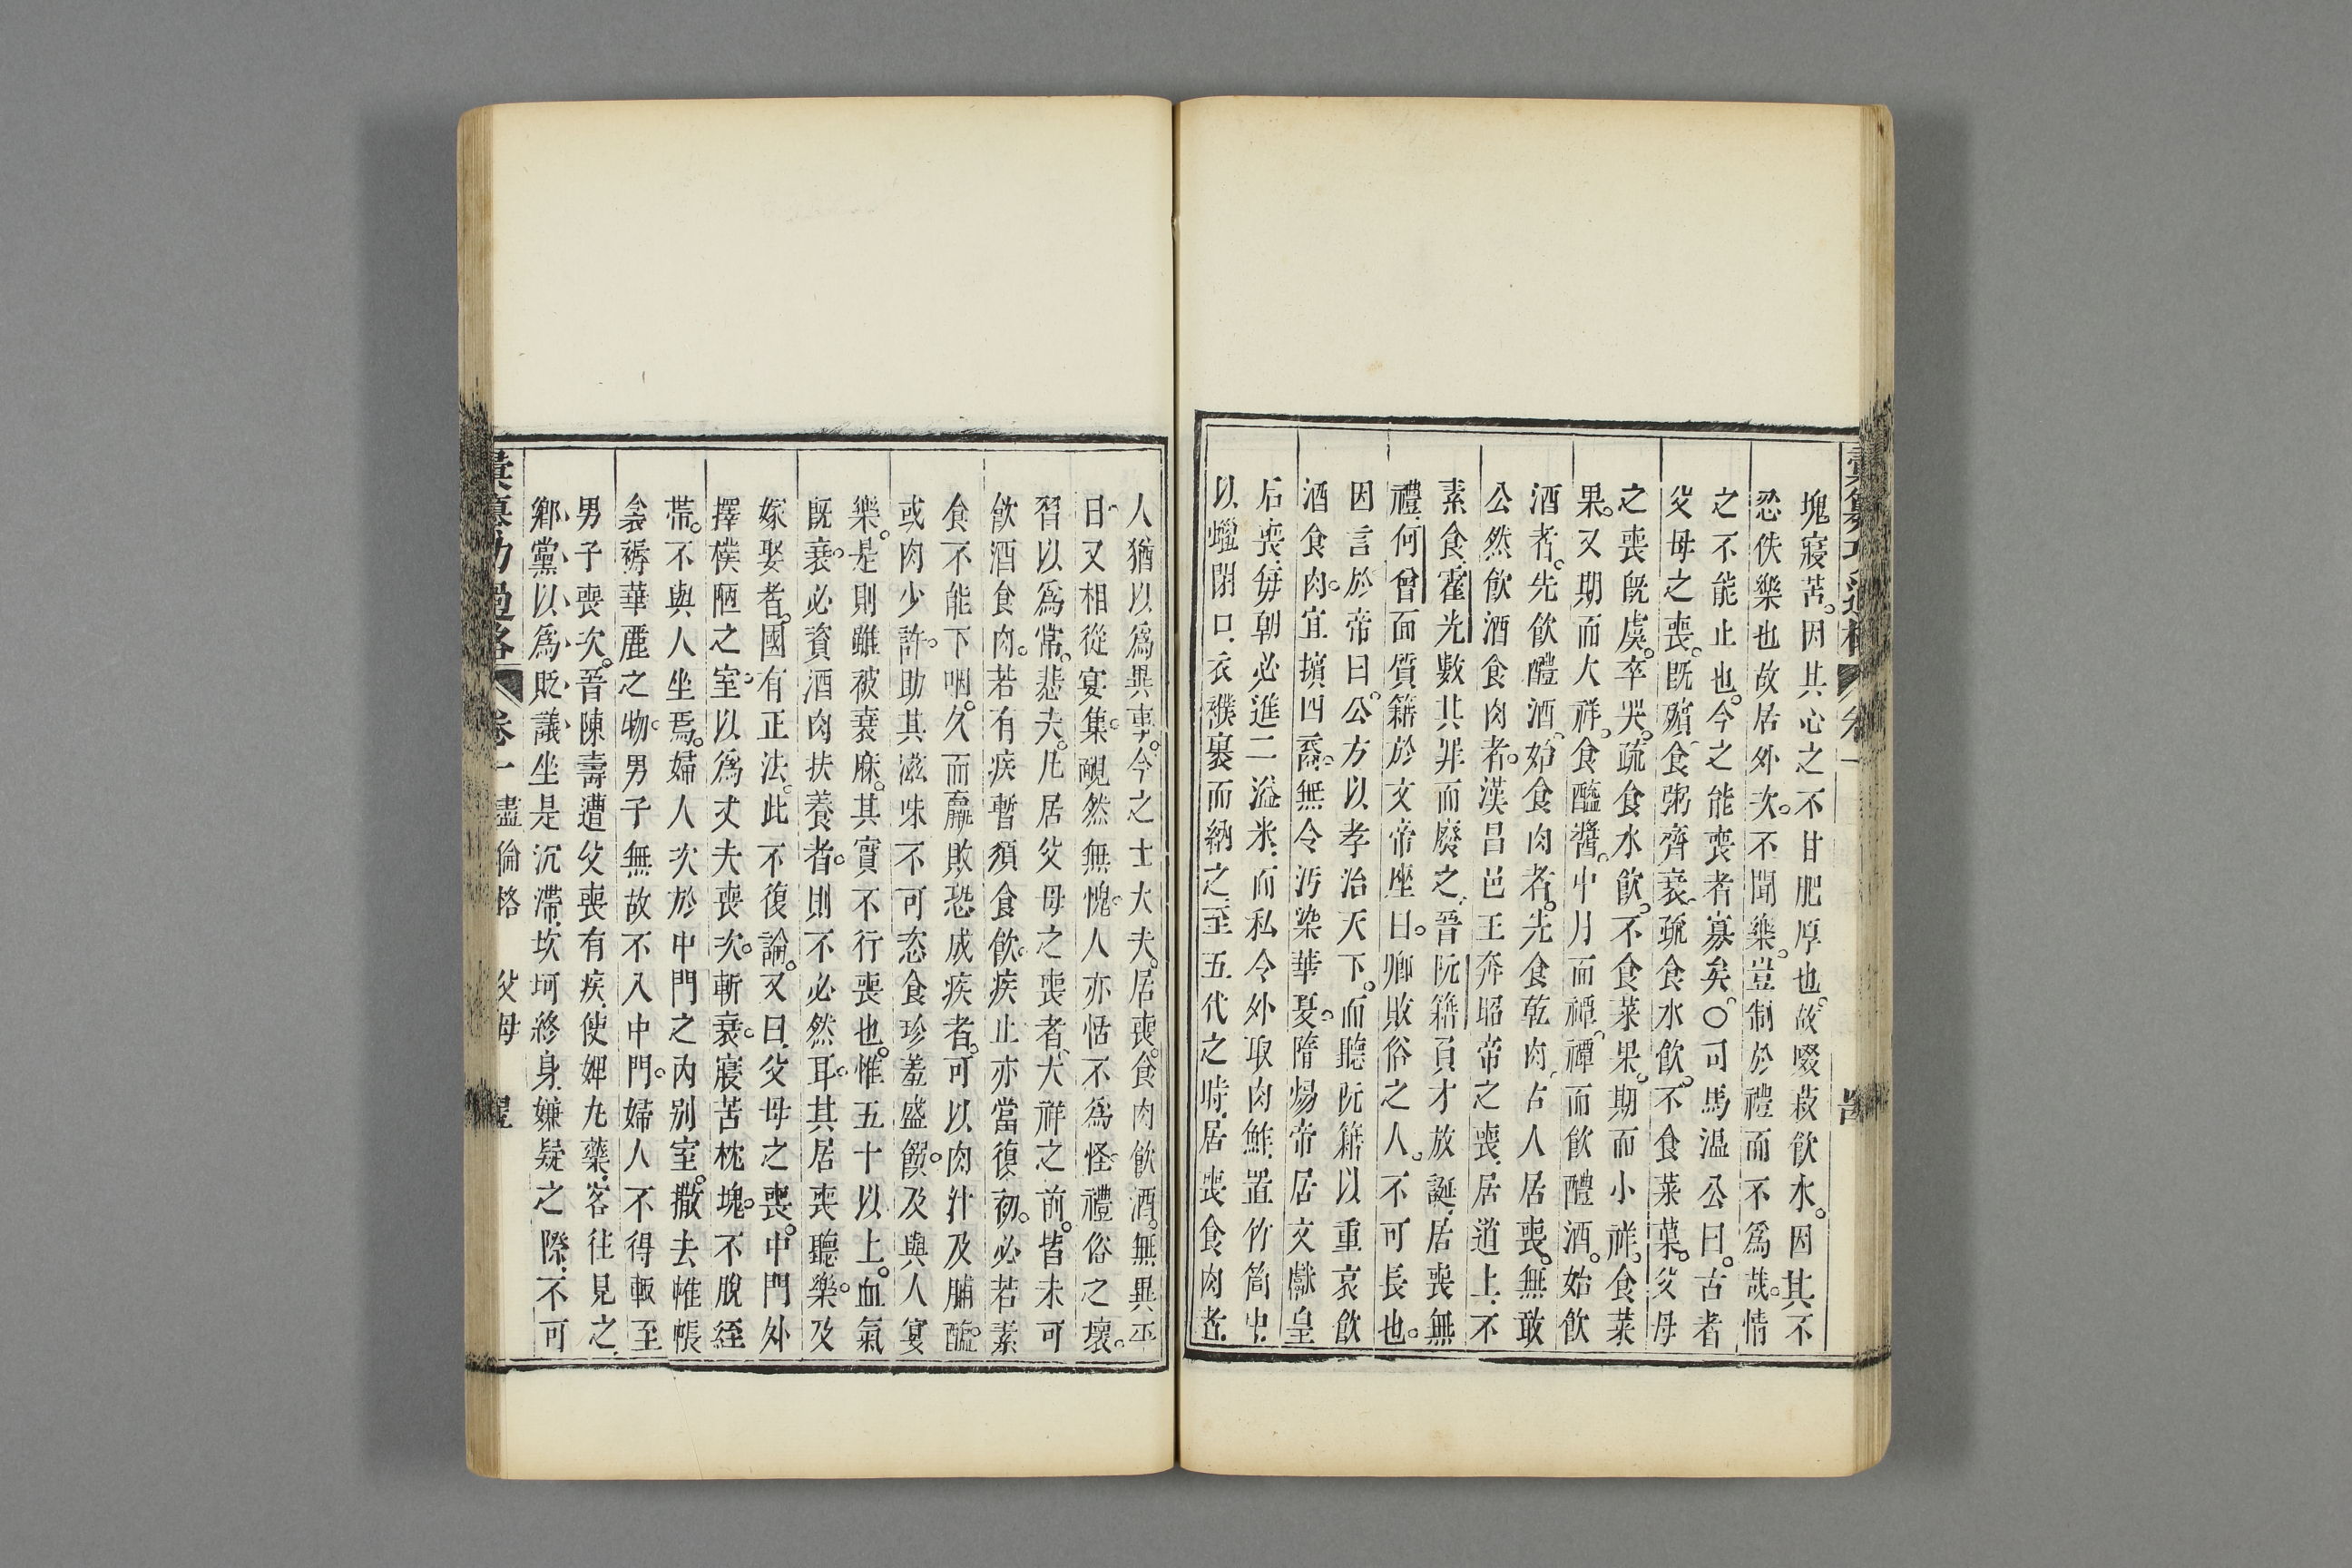 彙纂功過格 卷一
塊寢苫。因其心之不甘肥厚也。故啜菽飲水。因其不
忍佚樂也故居外次。不聞樂。豈制於禮而不爲哉。情
之不能止也。今之能喪者寡矣。〇司馬温公曰。古者
父母之喪。旣殯食粥齊衰。疏食水飲。不食菜菓。父母
之喪旣虞。卒哭。疏食水飲。不食菜果。期而小祥。食菜
果。又期而大祥。食醯醬。中月而禫。禫而飲醴酒。始飲
酒者。先飲醴酒。始食肉者。先食乾肉。古人居喪。無敢
公然飲酒食肉者。漢昌邑王奔昭帝之喪。居道上。不
素食。霍光數其罪而廢之。晉阮籍負才放誕。居喪無
禮。何曾面質籍於文帝座曰。卿敗俗之人。不可長也。
因言於帝曰。公方以孝治天下。而聽阮籍以重哀飲
酒食肉。宜擯四裔。無令汚染華夏。隋煬帝居文獻皇
后喪。每朝必進二溢米。而私令外取肉鮓。置竹筒中。
以蠟閉口。衣襆裹而納之。至五代之時。居喪食肉者。
人猶以爲異事。今之士大夫。居喪。食肉飲酒。無異平
日又相從宴集。靦然無愧。人亦恬不爲怪。禮俗之壞。
習以爲常。悲夫。凡居父母之喪者。大祥之前。皆未可
飲酒食肉。若有疾暫須食飲。疾止亦當復初。必若素
食不能下咽。久而羸敗。恐成疾者。可以肉汁及脯醢。
或肉少許。助其滋味不可恣食珍羞盛饌。及與人宴
樂。是則雖被衰麻。其實不行喪也。惟五十以上。血氣
旣衰。必資酒肉扶養者。則不必然耳。其居喪聽樂。及
嫁娶者。國有正法。此不復論。又曰。父母之喪。中門外
擇樸陋之室。以爲丈夫喪次。斬衰。寢苫枕塊。不脫絰
帶。不與人坐焉。婦人次於中門之內别室。撤去帷帳
衾褥華麗之物。男子無故不入中門。婦人不得輒至
男子喪次。晉陳壽遭父喪有疾。使婢丸藥。客往見之。
鄉黨以爲貶議坐是沉滯。坎坷終身。嫌疑之際。不可
彙纂功過格 卷一 盡倫格 父母